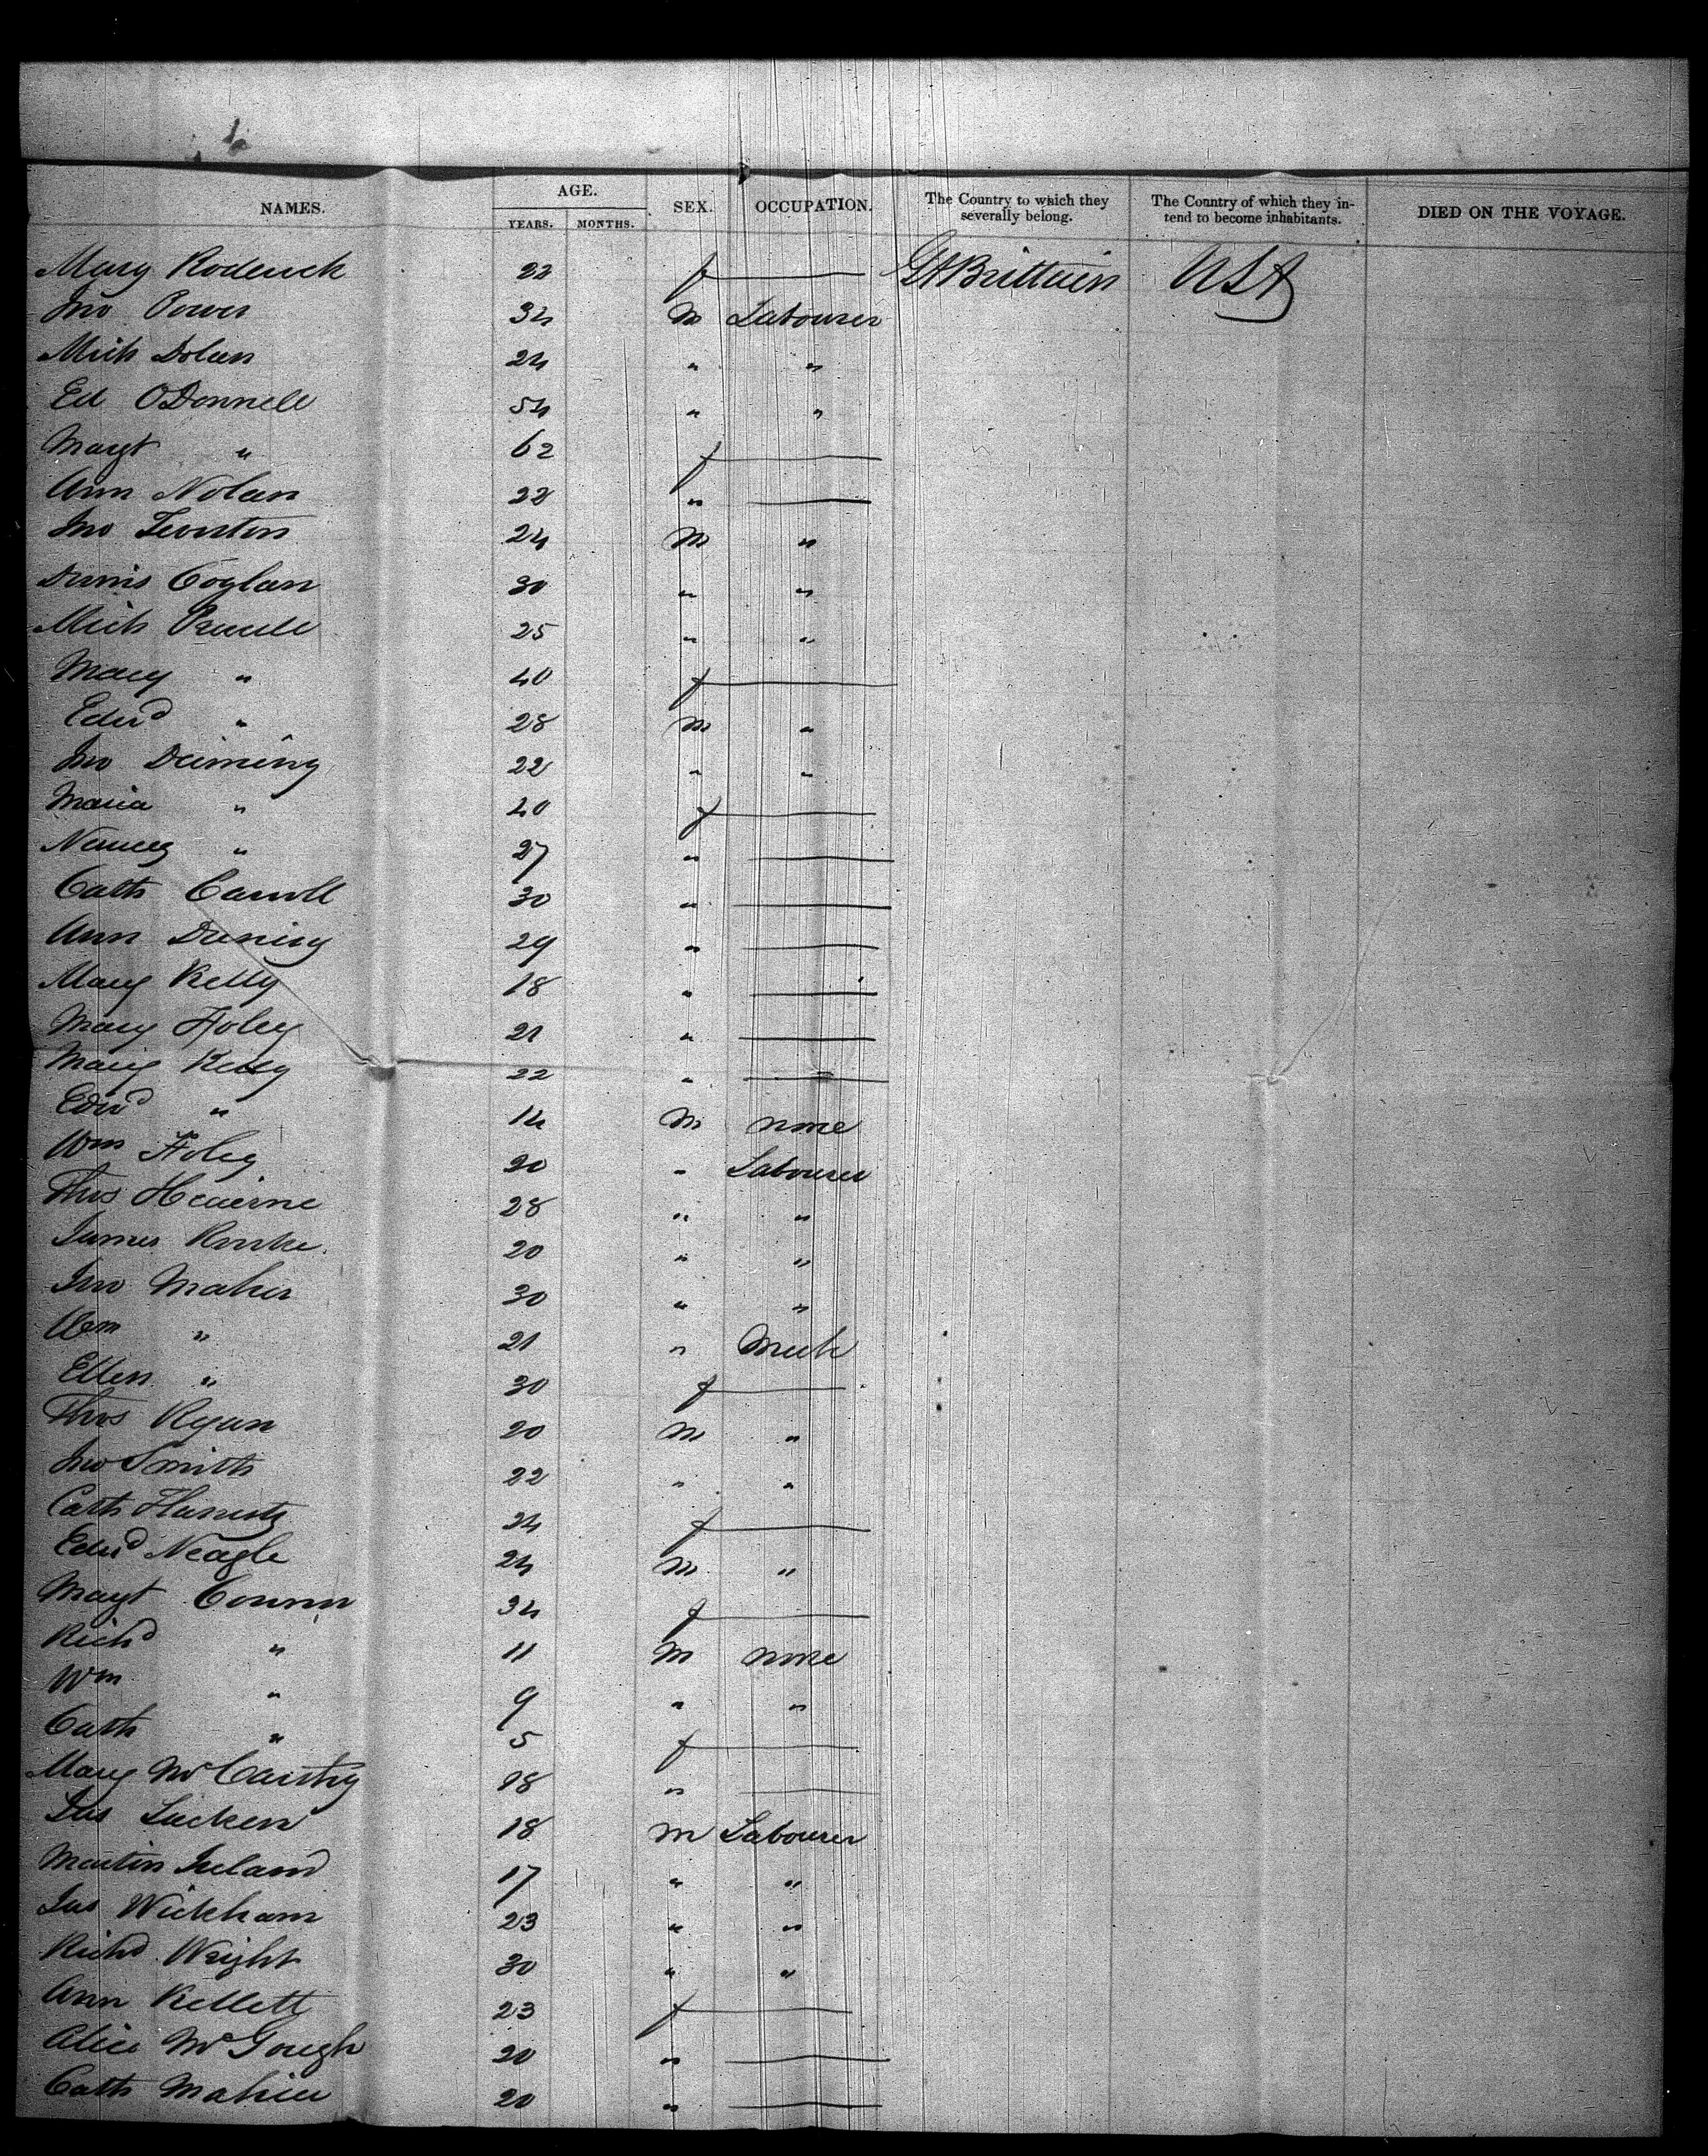 NAMES. AGE. SEX. OCCUPATION. The Country to which they severally belong. The Country of which they intend to become inhabitants. DIED ON THE VOYAGE.
YEARS. MONTHS.
Mary Roderick 22 f — Gt Brittain USA
Jno Power 34 m Labourer
Mich Dolan 24 " "
Ed ODonnell 54 " "
Margt " 62 f —
Ann Nolan 22 " —
Jno 24 m "
Dennis Coglan 30 " "
Mich 25 " "
Mary " 40 f —
Edwd " 28 m "
Jno 22 " "
Maria " 40 f —
Nancy " 27 " —
Cath Carroll 30 " —
Ann 29 " —
Mary Kelly 18 " —
Mary Foley 21 " —
Mary Kelly 22 " —
Edwd " 14 m none
Wm Foley 20 " Labourer
Thos Hearne 28 " "
James Rourke 20 " "
Jno Maher 30 " "
Wm " 21 " Mech
Ellen " 30 f —
Thos Ryan 20 m "
Jno Smith 22 " "
Cath 24 f —
Edwd Neagle 24 m "
Margt Connor 34 f —
Richd " 11 m none
Wm " 9 " "
Cath " 5 f —
Mary McCarthy 18 " —
Jas Lucken 18 m Labourer
Martin Ireland 17 " "
Jas Wickham 23 " "
Richd Wright 30 " "
Ann Kellett 23 f —
Alice McGough 20 " —
Cath Maher 20 " —